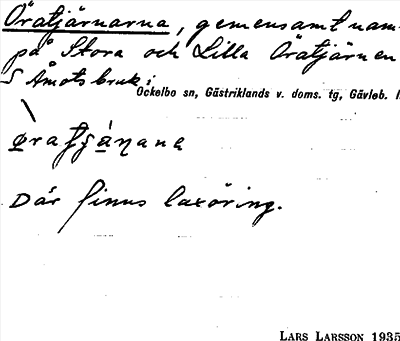 Öratjärnarna, gemensamt nam-
på Stora och Lilla Öratjärnen
S Åmots bruk i
Ockelbo sn, Gästriklands v. doms. tg, Gävleb. l
Där finns laxöring.
LARS LARSSON 1935